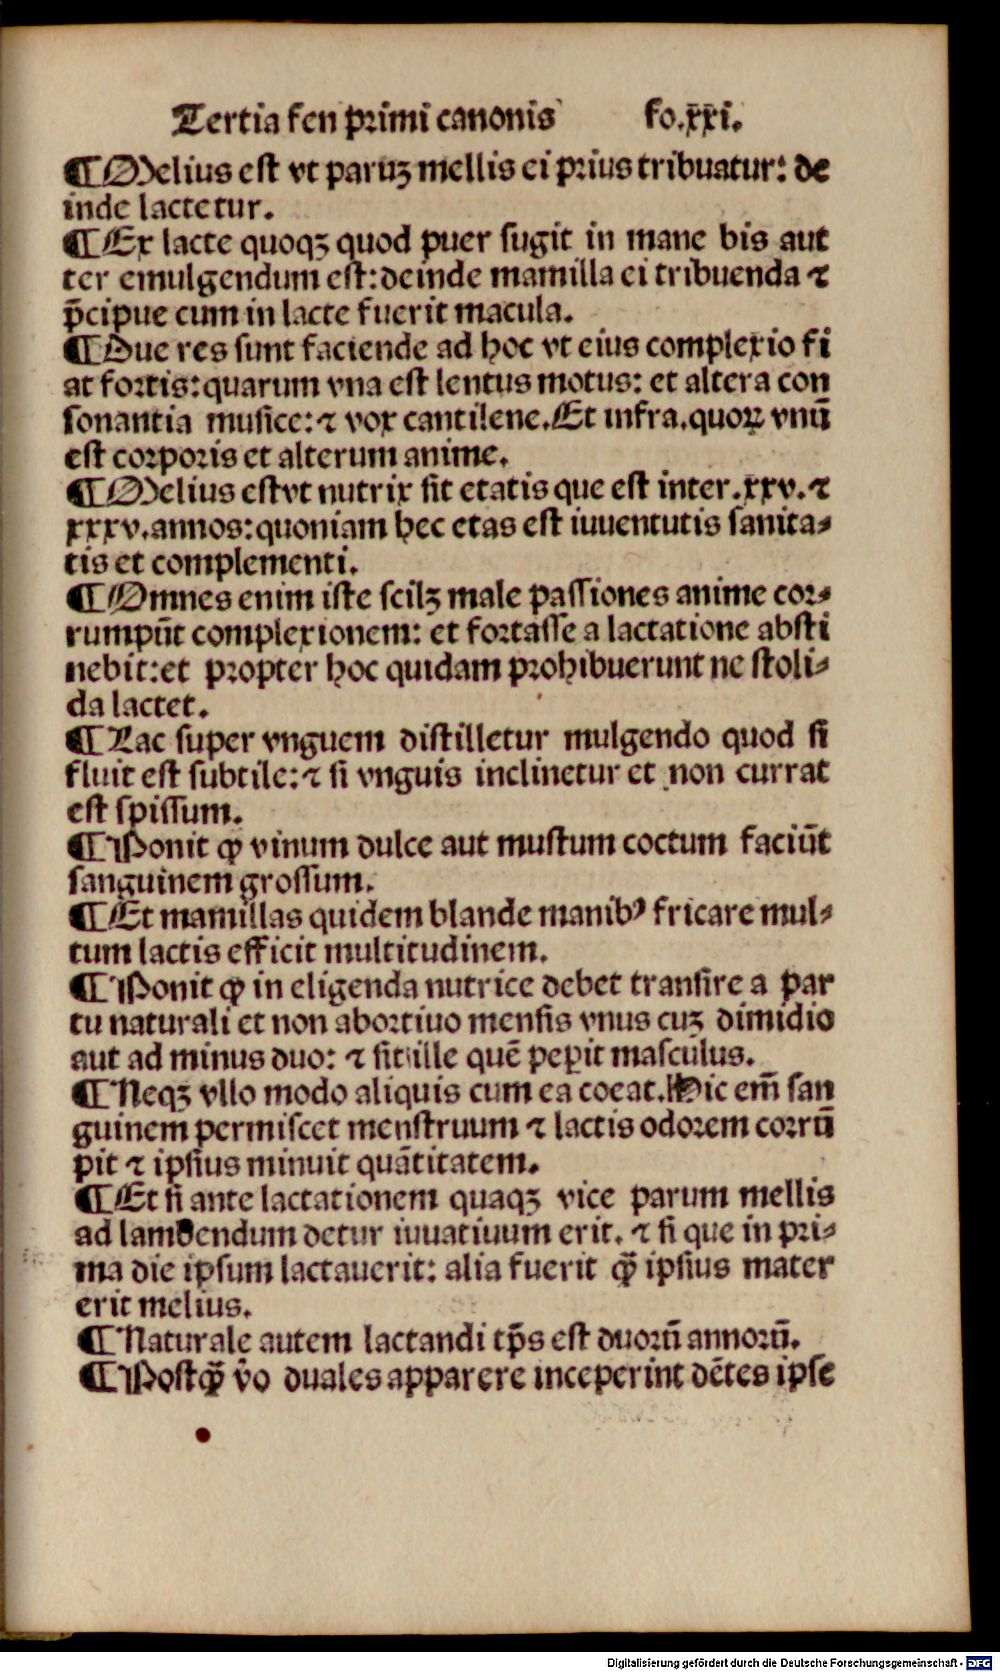 Tertia fen primi canonis fo.xxi.
¶ Melius est vt paruꝫ mellis ei prius tribuatur: de
inde lactetur.
¶ Ex lacte quoqꝫ quod puer sugit in mane bis aut
ter emulgendum est: deinde mamilla ei tribuenda ⁊
p̄cipue cum in lacte fuerit macula.
¶ Due res sunt faciende ad hoc vt eius complexio fi
at fortis: quarum vna est lentus motus: et altera con
sonantia musice: ⁊ vox cantilene. Et infra. quoꝝ vnū
est corporis et alterum anime.
¶ Melius est vt nutrix sit etatis que est inter .xxv. ⁊
xxxv. annos: quoniam hec etas est iuuentutis sanita⸗
tis et complementi.
¶ Omnes enim iste scilꝫ male passiones anime cor⸗
rumpūt complexionem: et fortasse a lactatione absti
nebit: et propter hoc quidam prohibuerunt ne stoli⸗
da lactet.
¶ Lac super vnguem distilletur mulgendo quod si
fluit est subtile: ⁊ si vnguis inclinetur et non currat
est spissum.
¶ Ponit ꝙ vinum dulce aut mustum coctum faciūt
sanguinem grossum.
¶ Et mamillas quidem blande manibꝰ fricare mul⸗
tum lactis efficit multitudinem.
¶ Ponit ꝙ in eligenda nutrice debet transire a par
tu naturali et non abortiuo mensis vnus cuꝫ dimidio
aut ad minus duo: ⁊ sit ille quē peperit masculus.
¶ Neqꝫ vllo modo aliquis cum ea coeat. Hic em̄ san
guinem permiscet menstruum ⁊ lactis odorem corrū
pit ⁊ ipsius minuit quātitatem.
¶ Et si ante lactationem quaqꝫ vice parum mellis
ad lambendum detur iuuatiuum erit. ⁊ si que in pri⸗
ma die ipsum lactauerit: alia fuerit ꝙ̄ ipsius mater
erit melius.
¶ Naturale autem lactandi tp̄s est duorū annorū.
¶ Postꝙ̄ v̄o duales apparere inceperint dētes ipse
Digitalisierung gefördert durch die Deutsche Forschungsgemeinschaft - DFG